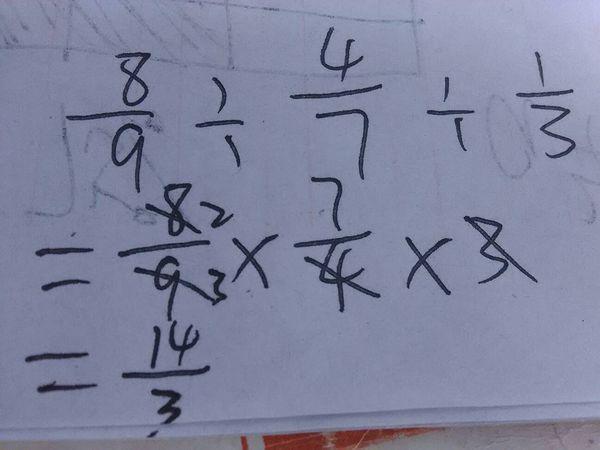 8/9 ÷ 4/7 ÷ 1/3
= 8 2/9 3 × 7/4 × 3
= 14/3